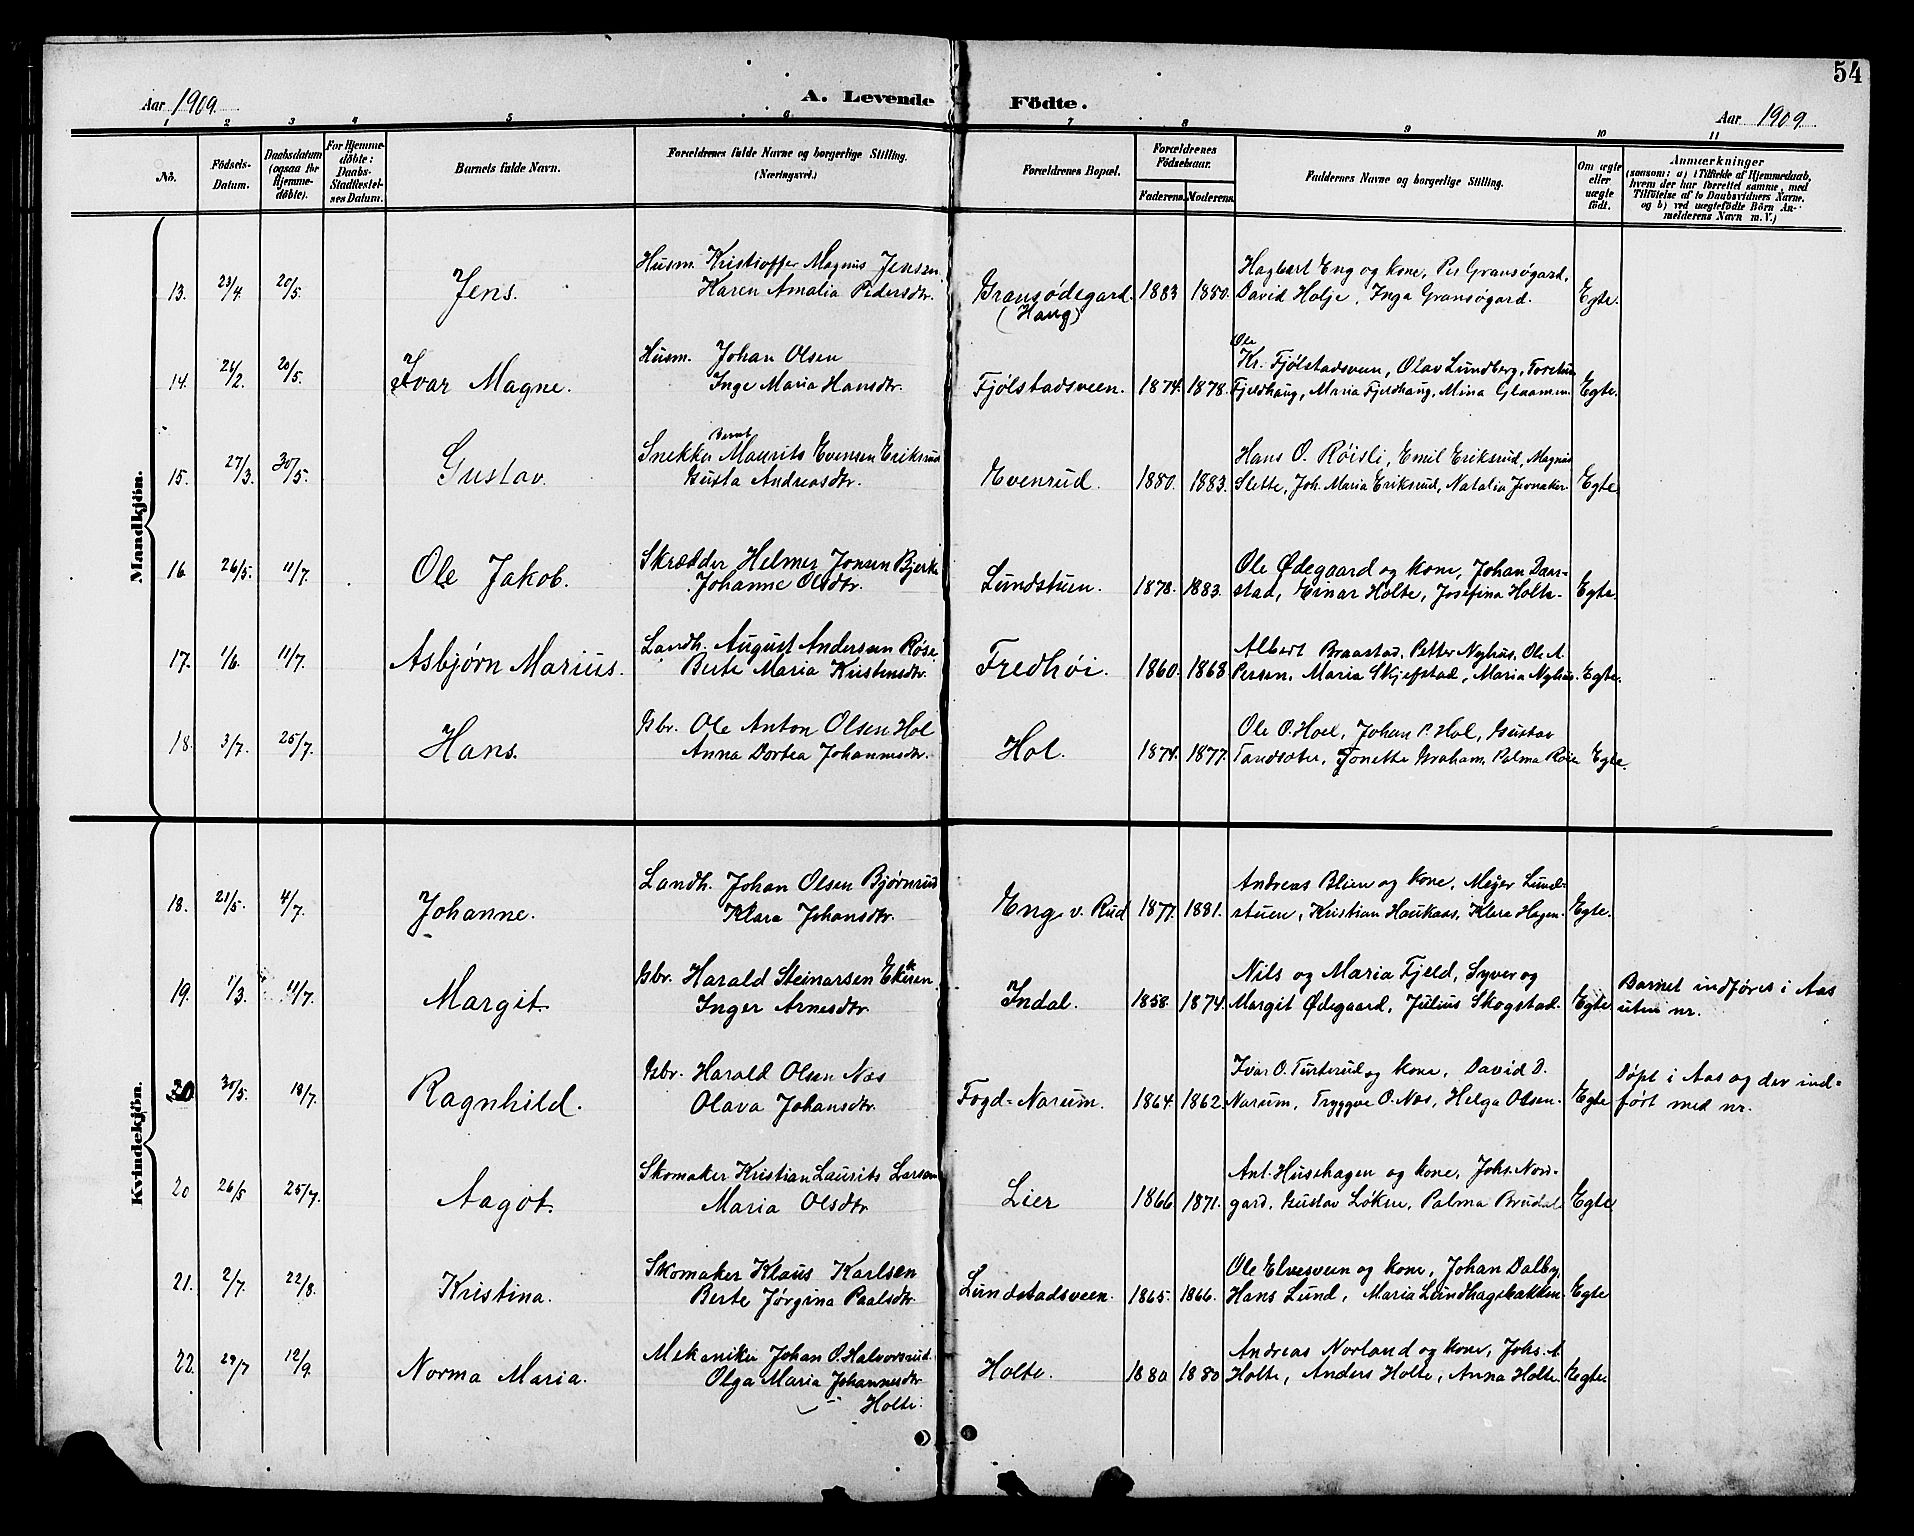 54
Aar 1909. A. Levende Födte. Aar 1909.
1 2 3 4 5 6 7 8 9 10 11
No. Födsels-Datum. Daabsdatum (ogsaa for Hjemmedöbte). For Hjemmedöbte: Daabs-Stadfæstelses Datum. Barnets fulde Navn. Forældrenes fulde Navne og borgerlige Stilling. (Næringsvei.) Forældrenes Bopæl. Forældrenes Födselsaar. Faderens. Moderens. Faddernes Navne og borgerlige Stilling. Om ægte eller uægte födt. Anmærkninger (saasom: a) i Tilfælde af Hjemmedaab, hvem der har forrettet samme, med Tilföielse af to Daabsvidners Navne, og b) ved uægtefödte Börn Anmelderens Navn m. V.)
Mandkjön.
Husm. Kristoffer Magnus Jensen Hagbart Eng og kone, Per Gransøgard,
13. 23/4 20/5. Jens. Karen Amalia Pedersdtr. Gransødegard. 1883 1880. David Holje, Inga Gransøgard. Egte.
(Haug)
Ole
Husm. Johan Olsen Kr. Fjølstadsveen, Olav Lundberg, Torstein
14. 26/2. 20/5. Ivar Magne. Inge Maria Hansdtr. Fjølstadsveen. 1874. 1878. Fjeldhaug, Maria Fjeldhaug, Mina Glaamen. Egte.
Bernt
Snekker Maurits Evensen Eriksrud Hans O. Røisli, Emil Eriksrud, Magnus
15. 27/3. 30/5. Gustav. Gusta Andreasdtr. Evenrud. 1880. 1883. Slette, Joh. Maria Eriksrud, Natalia Jevnaker. Egte
Skrædder Helmer Jonsen Bjerke Ole Ødegaard og kone, Johan Daar-
16 26/5. 11/7. Ole Jakob. Johanne Olsdtr. Lundstuen. 1878. 1883. stad, Einar Holte, Josefina Holte. Egte.
Landh. August Andersen Røse Albert Braastad, Petter Nyhus, Ole A.
17. 1/6. 11/7. Asbjørn Marius. Berte Maria Kristensdtr. Fredhøi. 1860. 1868 Persen, Maria Skjefstad, Maria Nyhus. Egte.
Gbr. Ole Anton Olsen Hol Ole O. Hoel, Johan P. Hol, Gustav
18. 3/7. 25/7. Hans. Anna Dortea Johannesdtr. Hol. 1874. 1877. Tandsæter, Tonette Graham, Palma Røise Egte.
Kvindekjön.
Landh. Johan Olsen Bjørnrud Andreas Blien og kone, Meyer Lund-
18. 21/5. 4/7. Johanne. Klara Johansdtr. Eng v. Rud 1877. 1881. stuen, Kristian Haukaas, Klara Hagen. Egte.
Gbr. Harald Steinarsen Ekeren Nils og Maria Fjeld, Syver og Barnet indføres i Aas
19. 1/3. 11/7. Margit. Inger Arnesdtr. Indal. 1858. 1874. Margit Ødegaard, Julius Skogstad. Egte uten nr.
Gbr. Harald Olsen Næs Ivar O. Turterud og kone, David D. Døpt i Aas og der ind-
20 30/5. 18/7. Ragnhild. Olava Johansdtr. Fogd-Narum. 1864. 1862. Narum, Tryggve O. Næs, Helga Olsen. Egte ført med nr.
Skomaker Kristian Laurits Larsen Ant. Husehagen og kone, Johs. Nor-
20 26/5 25/7. Aagot. Maria Olsdtr. Lier 1866 1871. gard, Gustav Løken, Palma Brudal. Egte
Skomaker Klaus Karlsen Ole Elvesveen og kone, Johan Dalby,
21. 2/7. 22/8. Kristina. Berte Jørgina Paalsdtr. Lundstadsveen. 1865. 1866. Hans Lund, Maria Lundhagsbakken. Egte
Mekaniker Johan O. Halvorsrud Andreas Norland og kone, Johs. A
22. 29/7 12/9. Norma Maria. Olga Maria Johannesdtr. Holte. 1880 1880 Holte, Anders Holte, Anna Holte. Egte.
Holte.